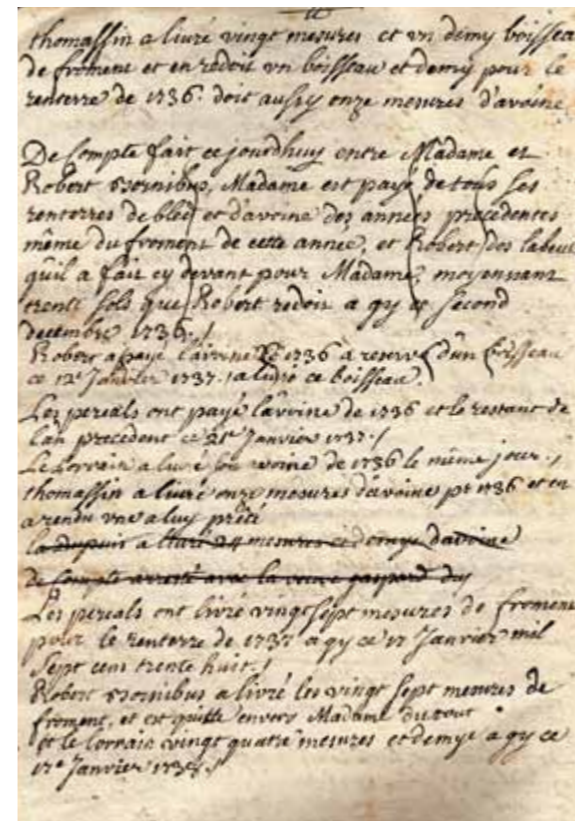 thomassin a livré vingt mesures et vn demy boissea
de froment et en redoit vn boisseau et demy pour le
renterre de 1736. doit aussy onze mesures d'avoine
De Compte fait ce jourdhuy entre Madame et
Robert Bornibus, Madame est payé de tous ses
renterres de bleé et d'avoine des années precedentes
même du froment de cette année, et Robert des labeur
qu'il a fait cy devant pour Madame, moyennant
trente sols que Robert redoit a gy ce second
decembre 1736./
Robert a payé l'avoine de 1736 a reserve d'un boisseau
ce 12e Janvier 1737. a livré ce boisseau.
Les pereals ont payé l'avoine de 1736 et le restant de
l'an precedent ce 21e Janvier 1737./
Le Lorrain a livré son avoine de 1736 le même jour./
thomassin a livré onze mesures d'avoine pr 1736 et en
a rendu vne a luy prêté
la dupuis a livré 24 mesures et demye d'avoine
de Compte arresté avec la veuve gaspard du
Les pereals ont livré vingt sept mesures de froment
pour le renterre de 1737 a gy ce 17 Janvier mil
sept cens trente huit./
Robert Bornibus a livré les vingt sept mesures de
froment, et est quitte envers Madame du tout
et le lorrain vingt quatre mesures et demye a gy ce
17e Janvier 1738./